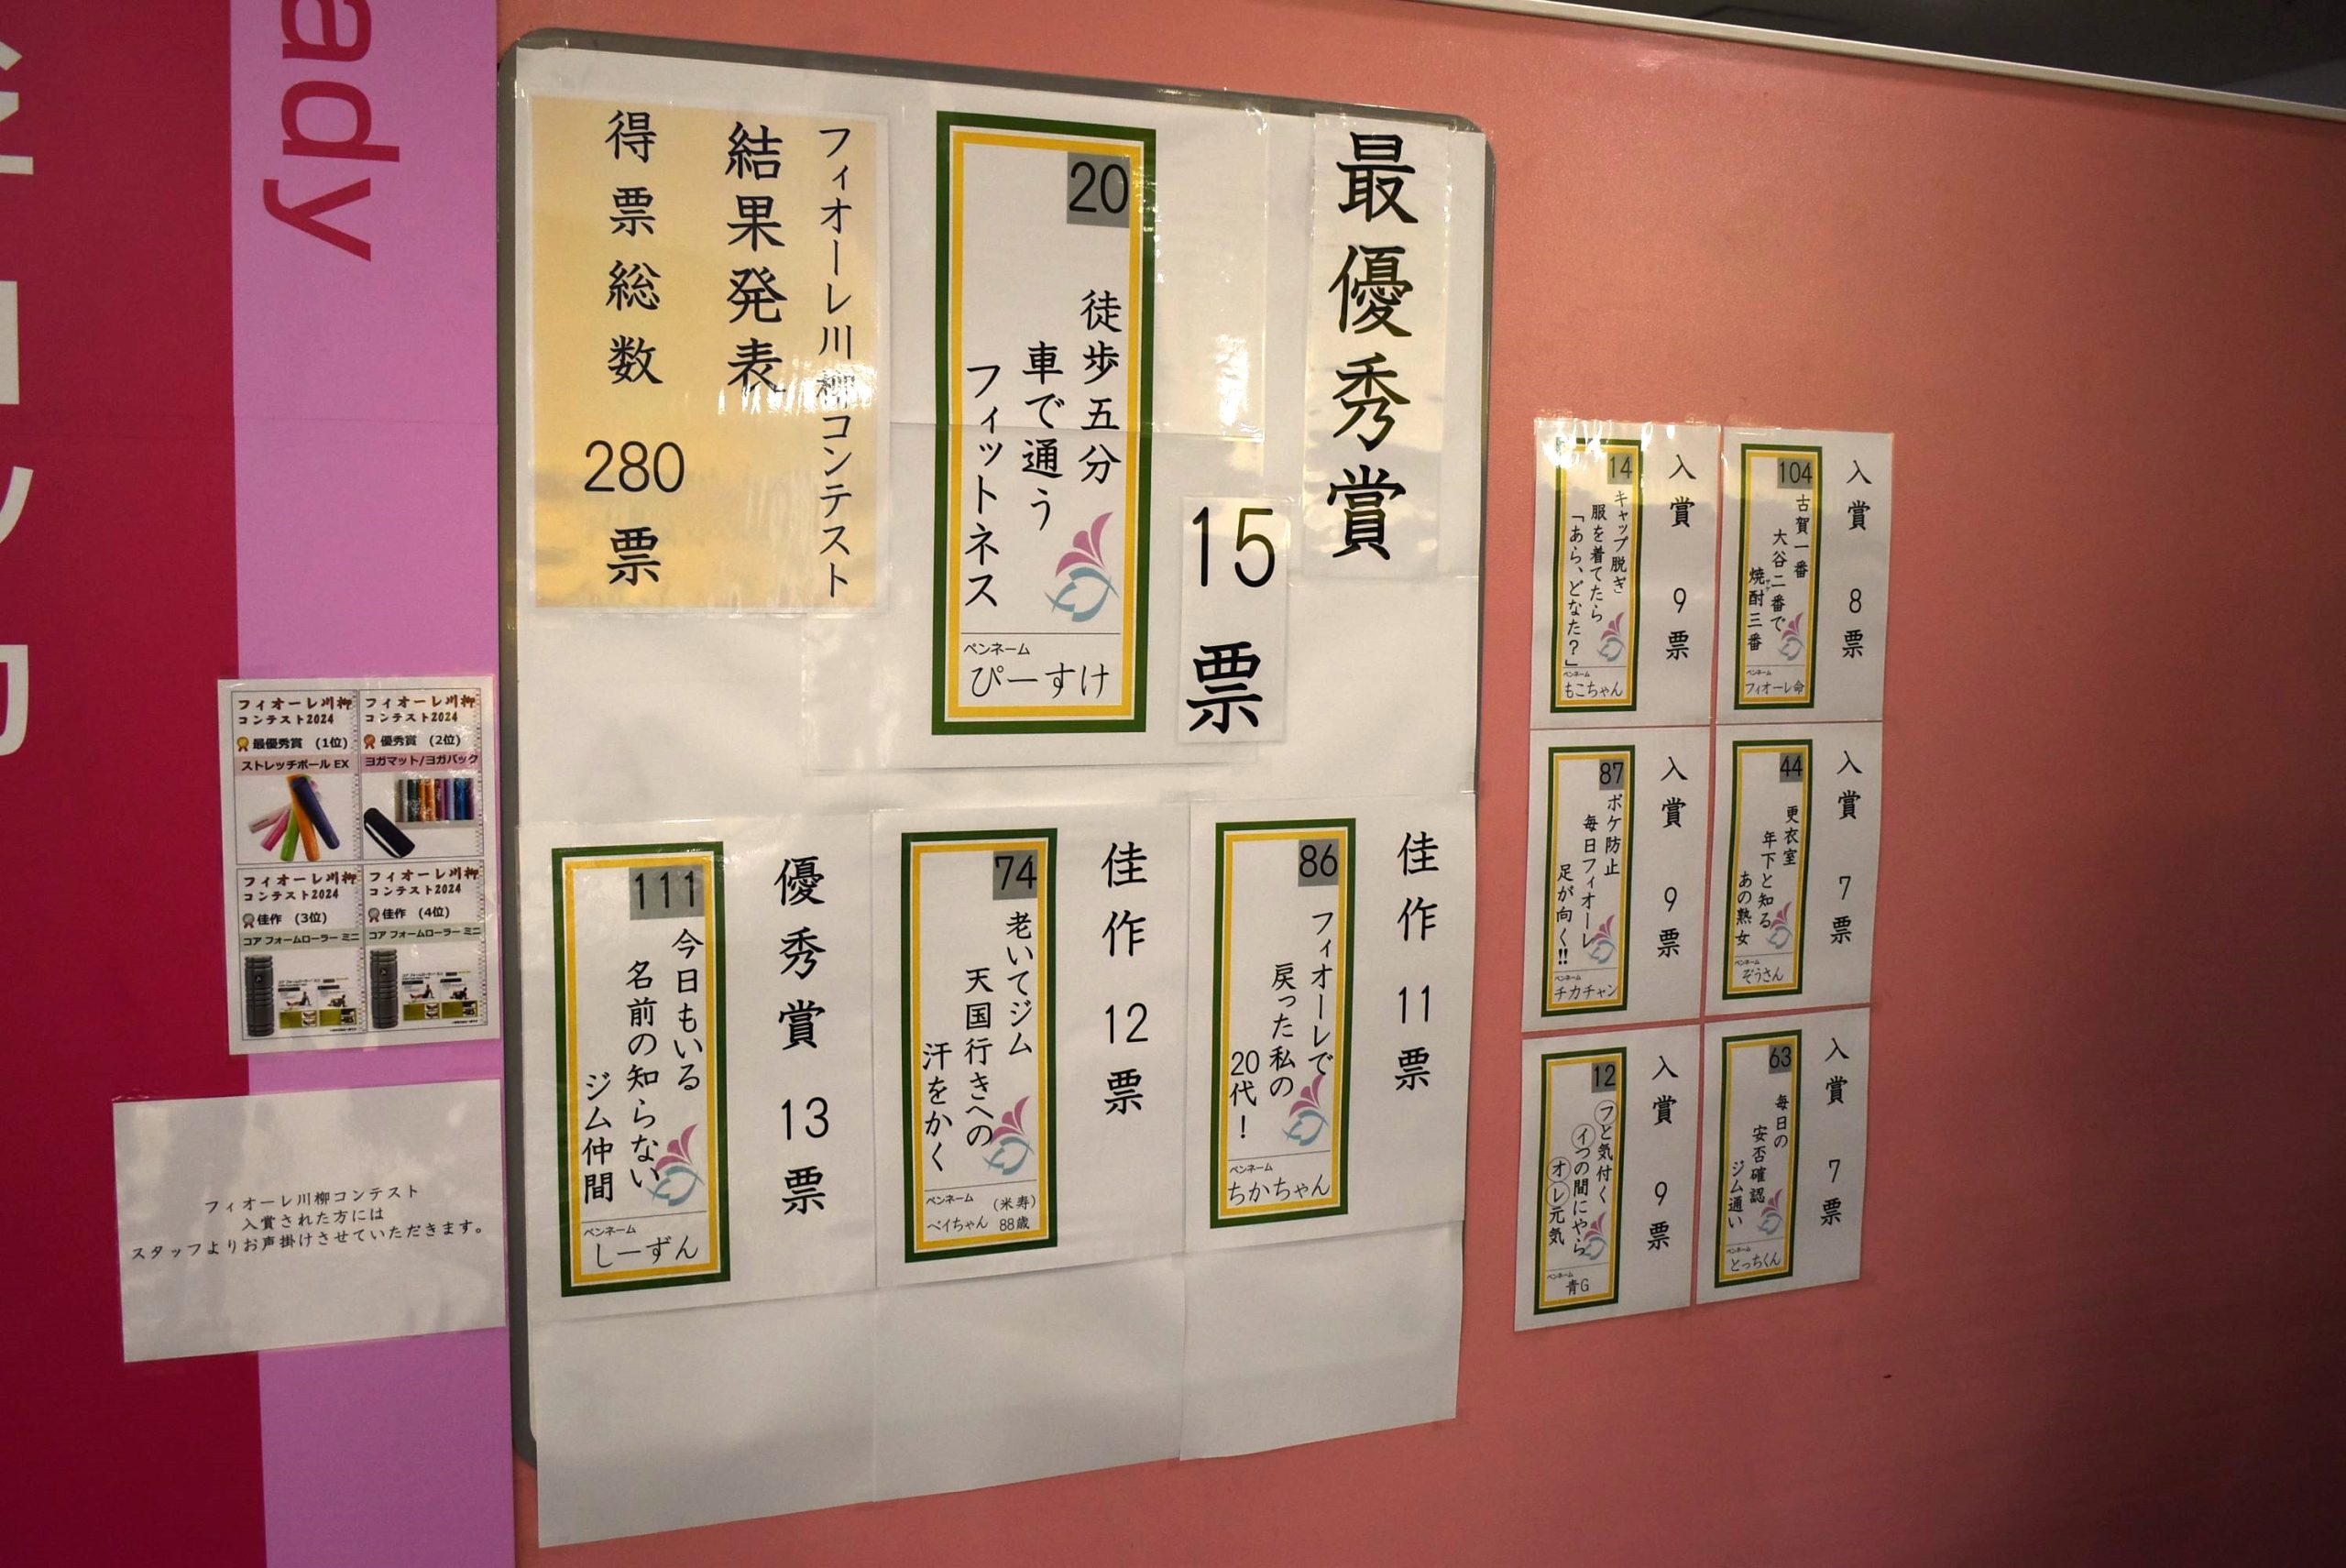 ady
最優秀賞
15票
20
徒歩五分
車で通う
フィットネス
ペンネーム
ぴーすけ
フィオーレ川柳コンテスト
結果発表
得票総数 280票
佳作 11票
86
フィオーレで
戻った私の
20代!
ペンネーム
ちかちゃん
佳作 12票
74
老いてジム
天国行きへの
汗をかく
ペンネーム
ベイちゃん
(米寿)
88歳
優秀賞 13票
111
今日もいる
名前の知らない
ジム仲間
ペンネーム
しーずん
入賞 8票
104
古賀一番
大谷二番で
焼酎三番
ペンネーム
フィオーレ命
入賞 9票
14
キャップ脱ぎ
服を着てたら
「あら、どなた?」
ペンネーム
もこちゃん
入賞 7票
44
更衣室
年下と知る
あの熟女
ペンネーム
ぞうさん
入賞 9票
87
ボケ防止
毎日フィオーレ
足が向く!!
ペンネーム
チカチャン
入賞 7票
63
毎日の
安否確認
ジム通い
ペンネーム
とっちくん
入賞 9票
12
フと気付く
イつの間にやら
オレ元気
ペンネーム
青G
フィオーレ川柳
コンテスト2024
最優秀賞 (1位)
ストレッチポール EX
フィオーレ川柳
コンテスト2024
優秀賞 (2位)
ヨガマット/ヨガバック
フィオーレ川柳
コンテスト2024
佳作 (3位)
コア フォームローラー ミニ
フィオーレ川柳
コンテスト2024
佳作 (4位)
コア フォームローラー ミニ
フィオーレ川柳コンテスト
入賞された方には
スタッフよりお声掛けさせていただきます。